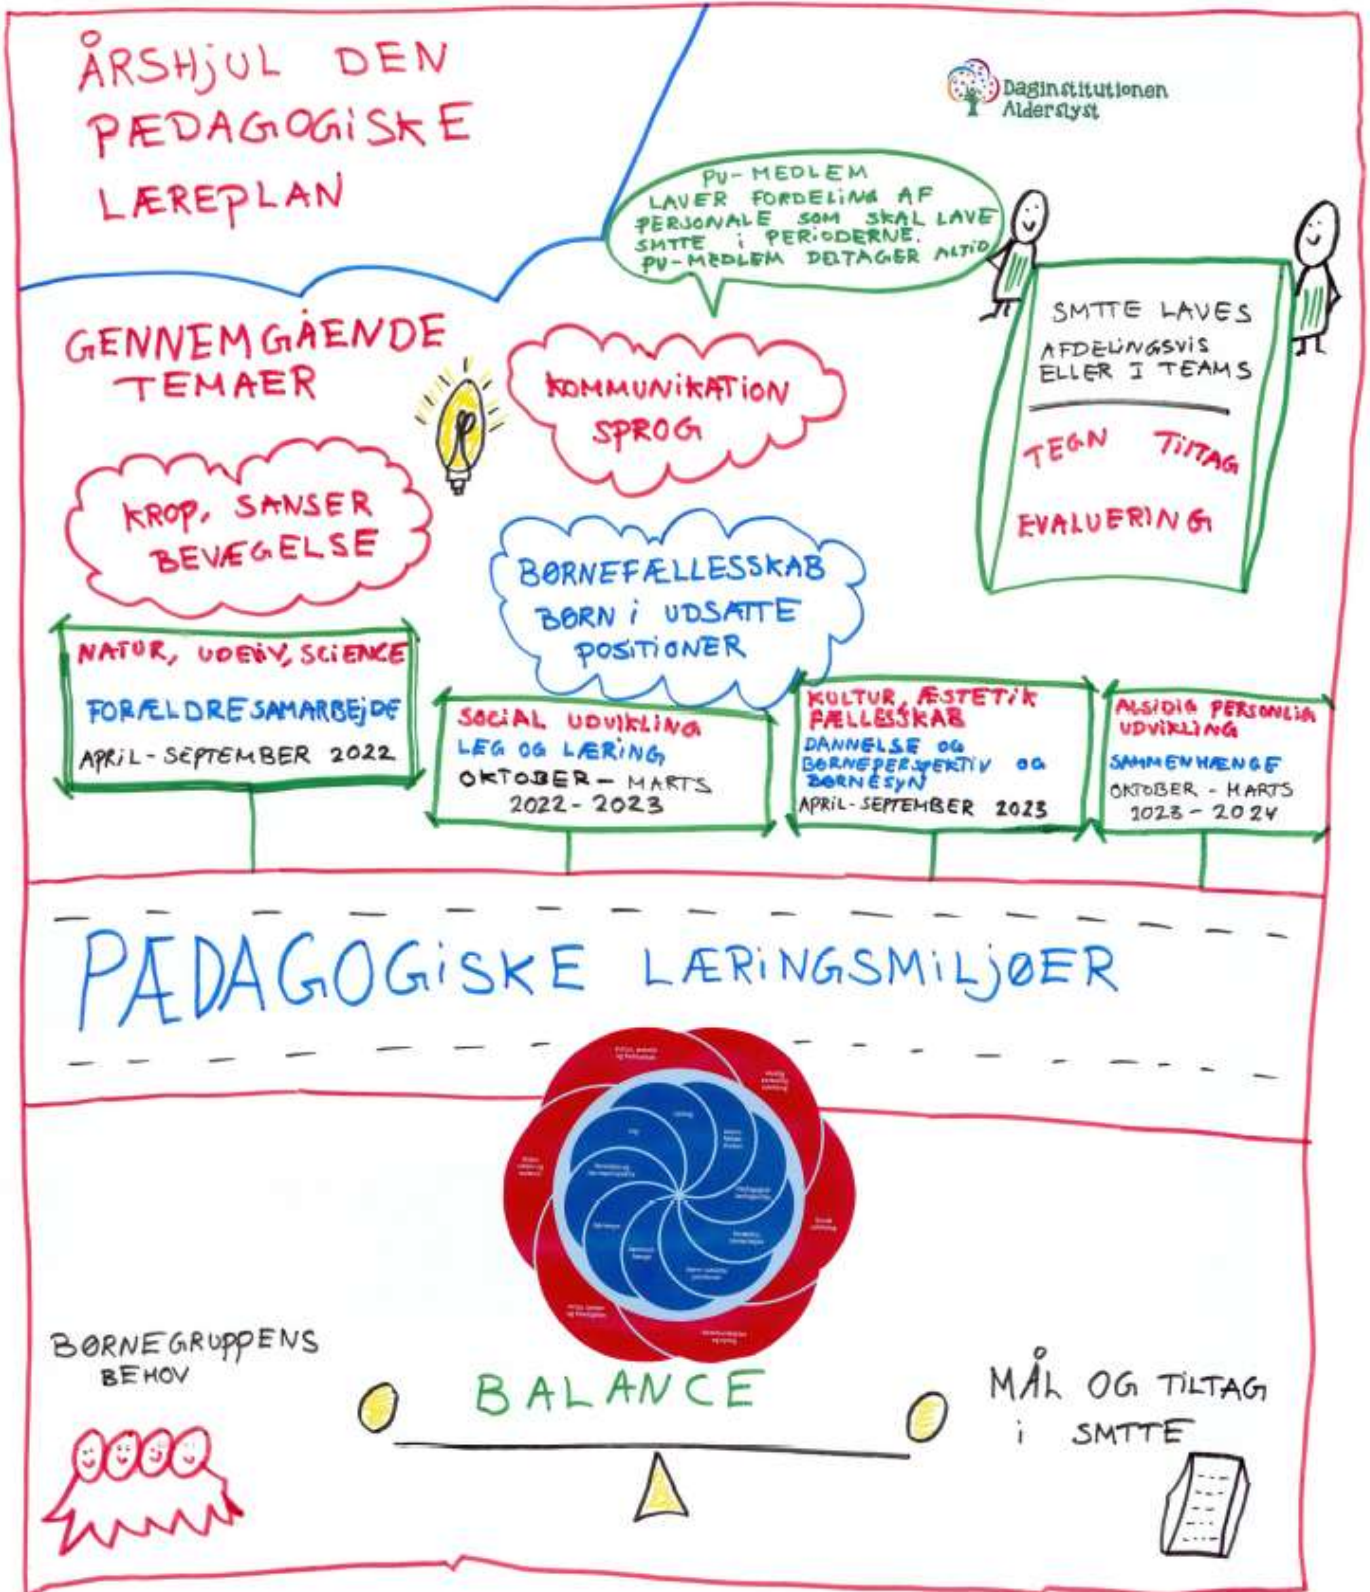 ÅRSHJUL DEN
PÆDAGOGISKE
LÆREPLAN
Daginstitutionen
Alderslyst
PU-MEDLEM
LAVER FORDELING AF
PERSONALE SOM SKAL LAVE
SMTTE i PERIODERNE.
PU-MEDLEM DELTAGER ALTID
SMTTE LAVES
AFDELINGSVIS
ELLER I TEAMS
TEGN TILTAG
EVALUERING
GENNEMGÅENDE
TEMAER
KOMMUNIKATION
SPROG
KROP, SANSER
BEVÆGELSE
BØRNEFÆLLESSKAB
BØRN i UDSATTE
POSITIONER
NATUR, UDELIV, SCIENCE
FORÆLDRESAMARBEJDE
APRIL - SEPTEMBER 2022
SOCIAL UDVIKLING
LEG OG LÆRING
OKTOBER - MARTS
2022 - 2023
KULTUR, ÆSTETIK
FÆLLESSKAB
DANNELSE OG
BØRNEPERSPEKTIV OG
BØRNESYN
APRIL - SEPTEMBER 2023
ALSIDIG PERSONLIG
UDVIKLING
SAMMENHÆNGE
OKTOBER - MARTS
2023 - 2024
PÆDAGOGISKE LÆRINGSMILJØER
BØRNEGRUPPENS
BEHOV
BALANCE
MÅL OG TILTAG
i SMTTE